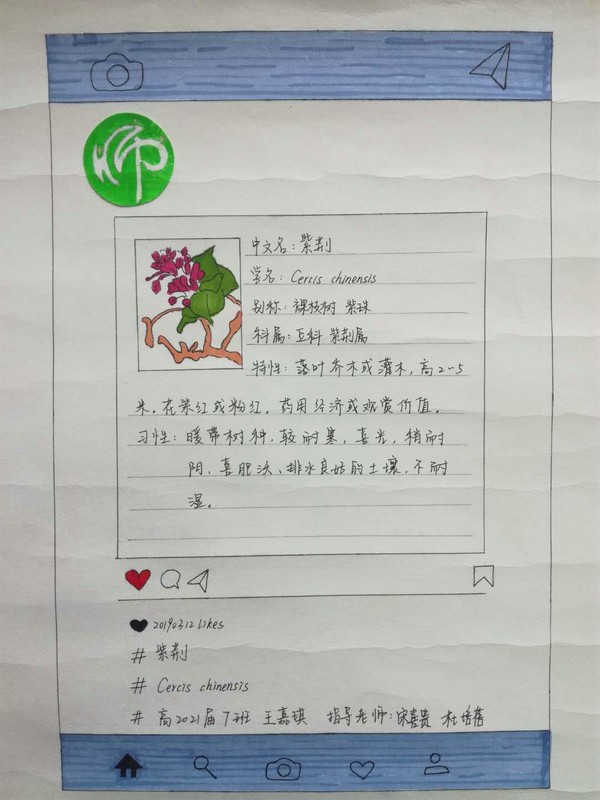 师
中文名：紫荆
学名：Cercis chinensis
别称：裸枝树 紫珠
科属：豆科 紫荆属
特性：落叶乔木或灌木，高2-5
米。花紫红或粉红。药用经济或观赏价值。
习性：暖带树种，较耐寒，喜光，稍耐
阴，喜肥沃、排水良好的土壤，不耐
湿。
20190312 Likes
# 紫荆
# Cercis chinensis
# 高2021届7班 王嘉琪 指导老师：宋喜贵 杜